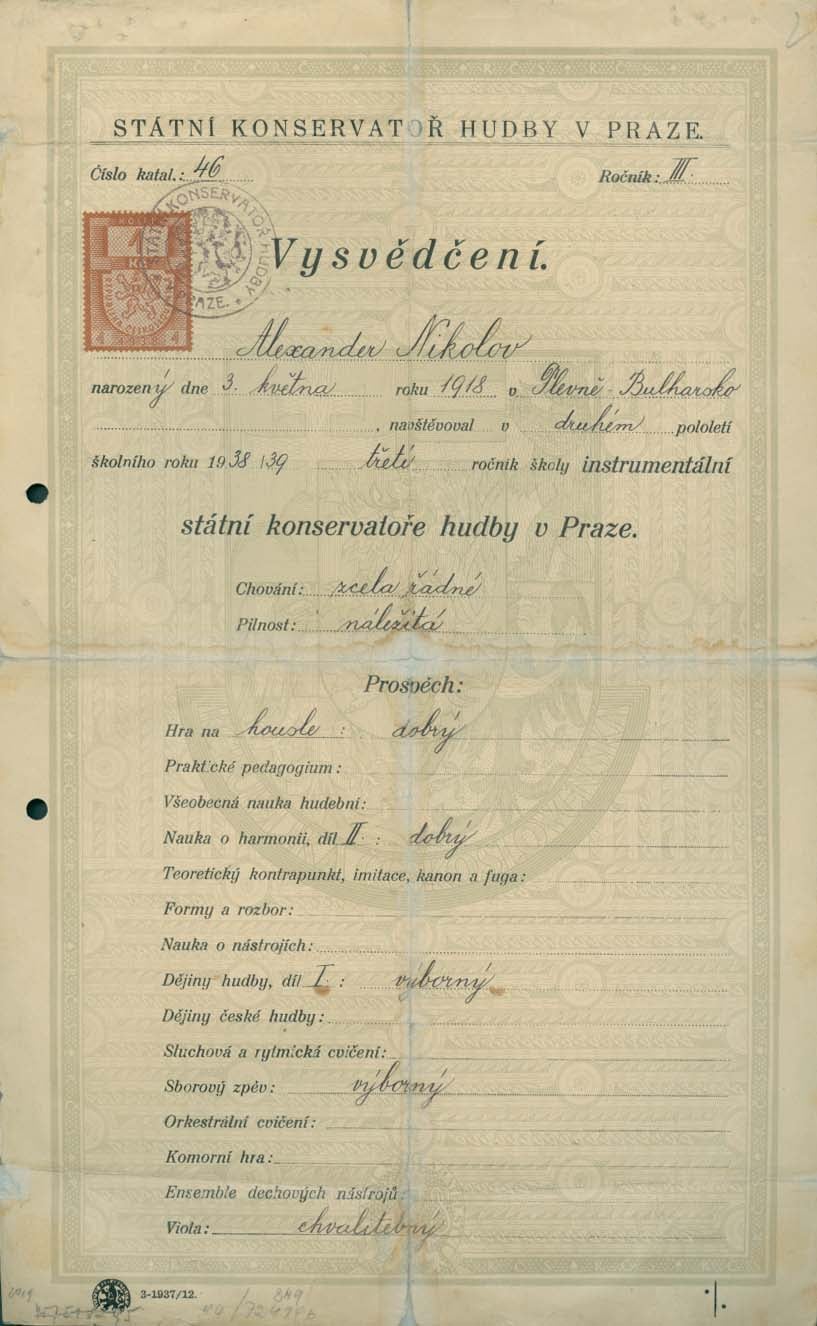 STÁTNÍ KONSERVATOŘ HUDBY V PRAZE.
Číslo katal.: 46 Ročník: III.
KOLEK
1
Kč
4 4
STÁTNÍ KONSERVATOŘ HUDBY V PRAZE.
Vysvědčení.
Alexander Nikolov
narozený dne 3. května roku 1918 v Plevně - Bulharsko
, navštěvoval v druhém pololetí
školního roku 1938/39 třetí ročník školy instrumentální
státní konservatoře hudby v Praze.
Chování: zcela řádné
Pilnost: náležitá
Prospěch:
Hra na housle : dobrý
Praktické pedagogium:
Všeobecná nauka hudební:
Nauka o harmonii, díl II. : dobrý
Teoretický kontrapunkt, imitace, kanon a fuga:
Formy a rozbor:
Nauka o nástrojích:
Dějiny hudby, díl I. : výborný
Dějiny české hudby:
Sluchová a rytmická cvičení:
Sborový zpěv: výborný
Orkestrální cvičení:
Komorní hra:
Ensemble dechových nástrojů:
Viola: chvalitebný
3-1937/12.
·/.